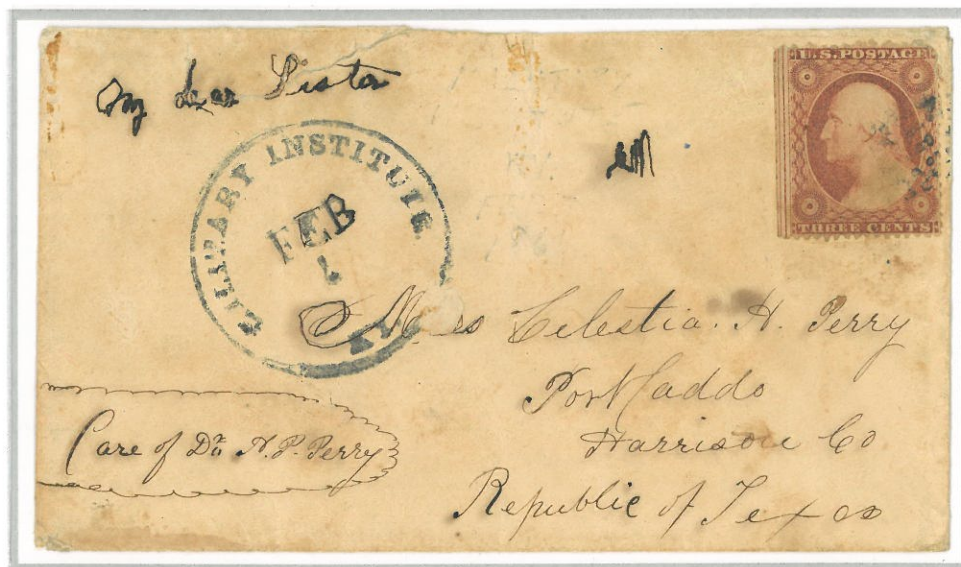 My dear Sister
U.S. POSTAGE
THREE CENTS
MILITARY INSTITUTE
FEB
1
KY
Miss Celestia. H. Perry
Port Caddo
Harrison Co
Republic of Texas
Care of Dr. H. P. Perry